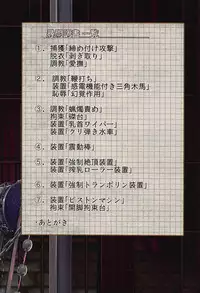 1. 捕獲「締め付け攻撃」
脱衣「剥ぎ取り」
調教「愛撫」
2. 調教「鞭打ち」
装置「感電機能付き三角木馬」
恥辱「幻覚作用」
3. 調教「蝋燭責め」
拘束「磔台」
装置「乳首ワイパー」
装置「クリ弾き水車」
4. 装置「震動棒」
5. 装置「強制絶頂装置」
装置「搾乳ローラー装置」
6. 装置「強制トランポリン装置」
7. 装置「ピストンマシン」
拘束「開脚拘束台」
・あとがき